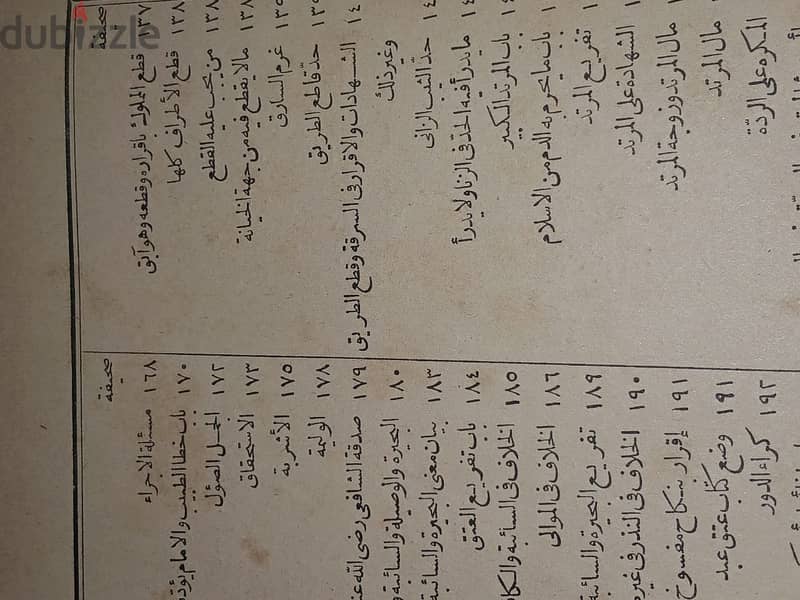 dubizzle
صحيفة
١٣٧ قطع المملوك باقراره وقطعه وهو آبق
١٣٨ قطع الأطراف كلها
١٣٨ من يجب عليه القطع
١٣٨ مالا يقطع فيه من جهة الخيانة
١٣٩ غرم السارق
١٣٩ حد قاطع الطريق
١٤ الشهادات والاقرار فى السرقة وقطع الطريق
وغير ذلك
١٤ حد الثيب الزانى
١٤ ما يدرأ فيه الحد فى الزنا ولا يدرأ
١ باب المرتد الكبير
١ باب ما يحرم به الدم من الاسلام
١ تفريع المرتد
١ الشهادة على المرتد
مال المرتد وزوجة المرتد
مال المرتد
المكره على الردة
صحيفة
١٦٨ مسئلة الاجراء
١٧٠ باب خطا الطبيب والامام يؤد
١٧٢ الجمل الصؤل
١٧٣ الاستحقاق
١٧٥ الأشربة
١٧٨ الولية
١٧٩ صدقة الشافعى رضى الله عنه
١٨٠ البحيرة والوصيلة والسائبة و
١٨٣ بيان معنى البحيرة والسائبة
١٨٤ باب تفريع العتق
١٨٥ الخلاف فى السائبة والكا
١٨٦ الخلاف فى الموالى
١٨٩ تفريع البحيرة والسائبة
١٩٠ الخلاف فى النذر فى غير
١٩١ إقرار بنكاح مفسوخ
١٩١ وضع كتاب عتق عبد
١٩٢ كراء الدور